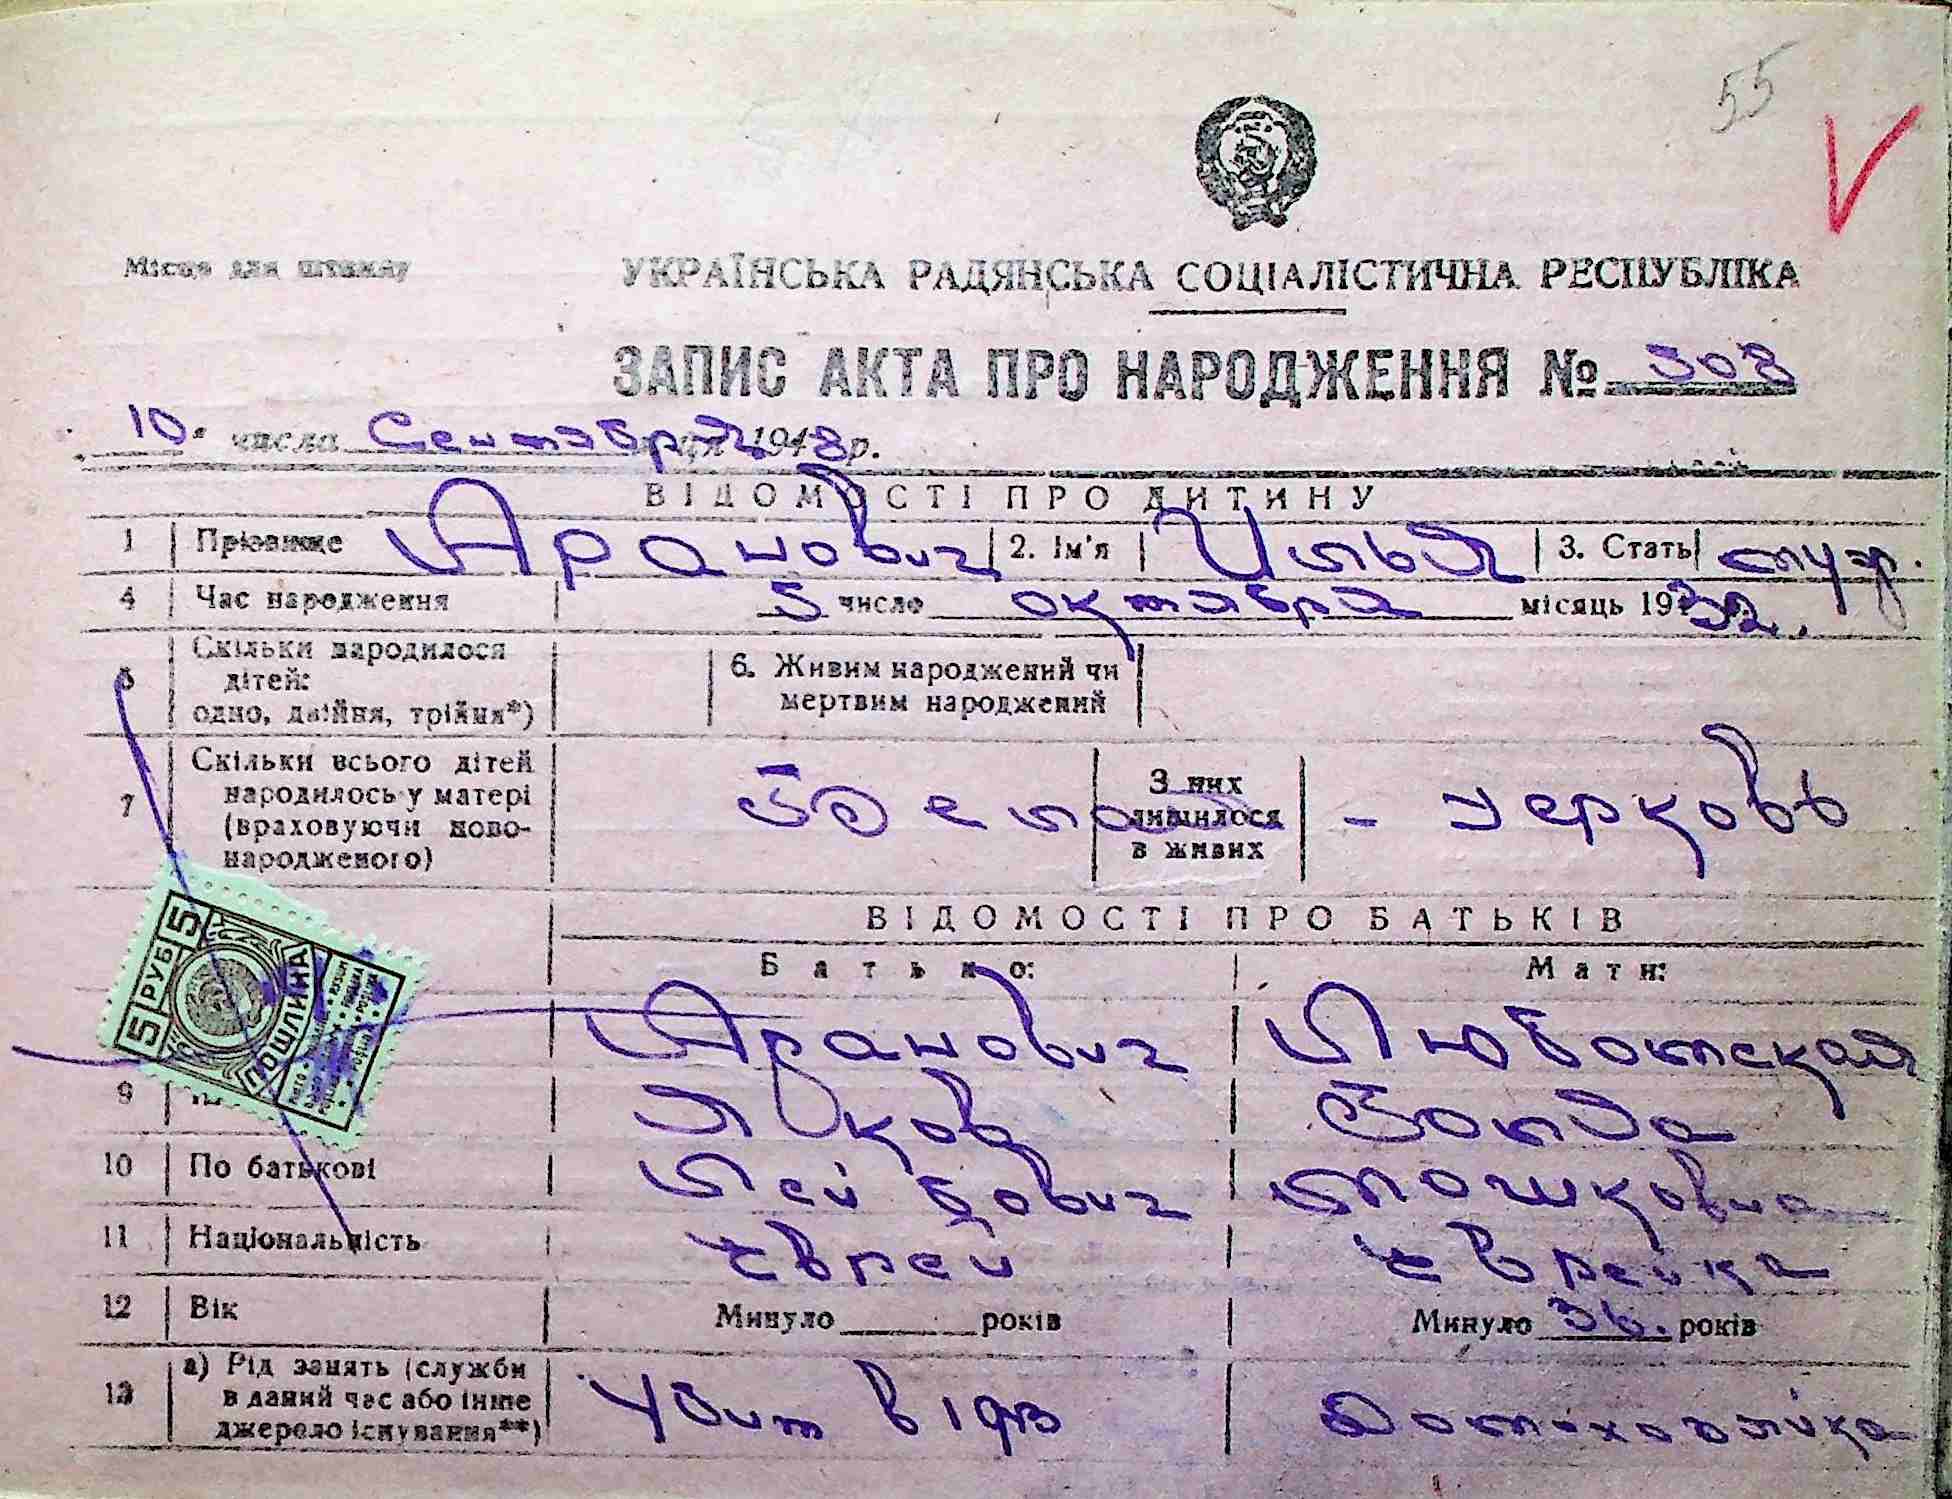 55
Місце для штампу
УКРАЇНСЬКА РАДЯНСЬКА СОЦІАЛІСТИЧНА РЕСПУБЛІКА
ЗАПИС АКТА ПРО НАРОДЖЕННЯ № 308
10. числа Сентября 1948 р.
ВІДОМОСТІ ПРО ДИТИНУ
1 Прізвище Аранович 2. Ім'я Илья 3. Стать муж.
4 Час народження 5 число октября місяць 1932.
5 Скільки народилося дітей: одно, двійня, трійня*) 6. Живим народжений чи мертвим народжений
7 Скільки всього дітей народилось у матері (враховуючи новонародженого) З них лишилося в живих
ВІДОМОСТІ ПРО БАТЬКІВ
Батько: Мати:
5 РУБ 5
ПОШЛИНА
Аранович Любомская
9 Якова Зольда
10 По батькові Лейбович Мошковна
11 Національність Еврей Еврейка
12 Вік Минуло років Минуло 36. років
13 а) Рід занять (служби в даний час або інше джерело існування**) Убит в Домохозяйка